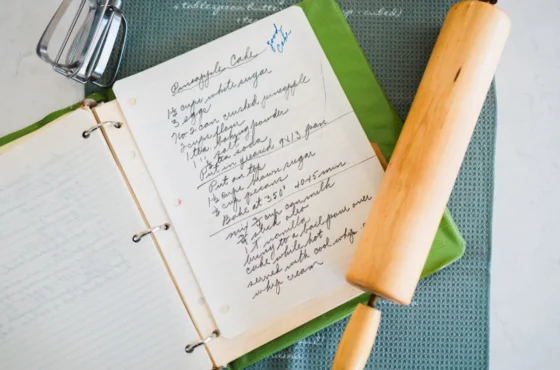 tablespoon butter
cubed)
Good
Cake
Pineapple Cake
1½ cups white sugar
3 eggs
No 2 can crushed pineapple
2 cups flour
1 tea baking powder
1 " salt
tea soda
Put in greased 9x13 pan
Put on top
1½ cups brown sugar
cup pecans
Bake at 350° 40-45 min
mix ¾ cup can milk
¾ stick oleo
1 t vanilla
bring to a boil pour over
cake while hot
served with cool whip or
whip cream